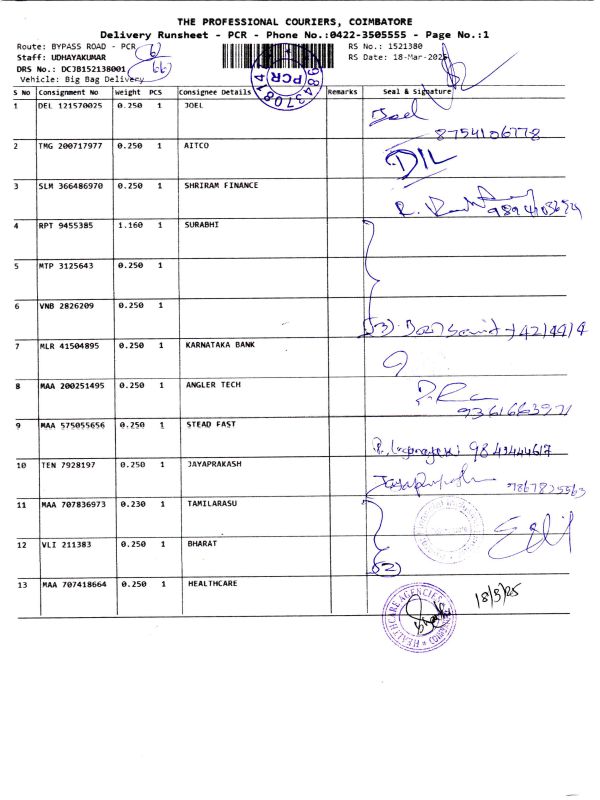 THE PROFESSIONAL COURIERS, COIMBATORE
Delivery Runsheet - PCR - Phone No.:0422-3505555 - Page No.:1
Route: BYPASS ROAD - PCR
RS No.: 1521380
Staff: UDHAYAKUMAR
RS Date: 18-Mar-2025
DRS No.: DCJB152138001
Vehicle: Big Bag Delivery
PCR
S No Consignment No Weight PCS Consignee Details Remarks Seal & Signature
1 DEL 121570025 0.250 1 JOEL Joel
8754106778
2 TMG 200717977 0.250 1 AITCO DIL
3 SLM 366486970 0.250 1 SHRIRAM FINANCE
4 RPT 9455385 1.160 1 SURABHI
5 MTP 3125643 0.250 1
6 VNB 2826209 0.250 1
7 MLR 41504895 0.250 1 KARNATAKA BANK
8 MAA 200251495 0.250 1 ANGLER TECH
9361663971
9 MAA 575055656 0.250 1 STEAD FAST
9843444617
10 TEN 7928197 0.250 1 JAYAPRAKASH
9867825563
11 MAA 707836973 0.230 1 TAMILARASU
12 VLI 211383 0.250 1 BHARAT
(2)
13 MAA 707418664 0.250 1 HEALTHCARE
18/3/25
HEALTHCARE AGENCIES